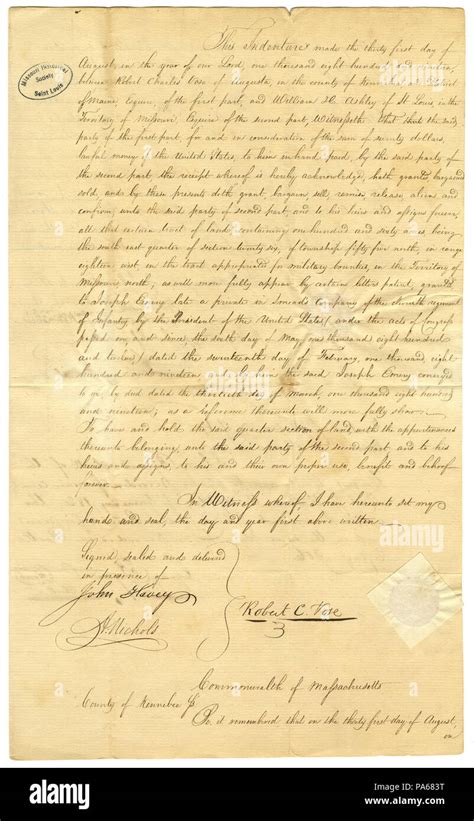 Missouri Historical
Society
Saint Louis
This Indenture made the thirty first day of
August, in the year of our Lord, one thousand eight hundred and
between Robert Charles Vose of Augusta, in the county of Kennebec
of Maine, Esquire, of the first part, and William H. Ashley of St. Louis in the
Territory of Missouri Esquire of the second part, Witnesseth that the said
party of the first part, for and in consideration of the sum of seventy dollars,
lawful money of the United States, to him in hand paid, by the said party of
the second part the receipt whereof is hereby acknowledge, hath granted bargained
sold, and by these presents doth grant, bargain sell remise release, alien and
confirm unto the said party of second part, and to his heirs and assigns forever,
all that certain tract of land, containing one hundred and sixty acres being
the south east quarter of section twenty six, of township fifty five north, in range
eighteen west in the tract appropriated for military bounties, in the Territory of
Missouri north, as will more fully appear by certain letters patent, granted
to Joseph late a private in Company of the regiment
of Infantry by the President of the United States (under the acts of congress
passed on and since, the sixth day of May, one thousand eight hundred
and twelve) dated the seventeenth day of February, one thousand eight
hundred and nineteen by him the said Joseph conveyed
to by deed dated the thirtieth day of March, one thousand eight hundred
and nineteen; as a reference thereunto will more fully shown
To have and hold the said quarter section of land with the appurtenances
thereunto belonging, unto the said party of the second part and to his
heirs and assigns, to his and their own proper use, benefit and behoof
forever.
In Witness whereof, I have hereunto set my
hand and seal, the day and year first above written
Signed, sealed and delivered
in presence of
John
Nichols
Robert C. Vose
Commonwealth of Massachusetts
County of Kennebec
Be it remembered that on the thirty first day of August,
on
alamy
alamy
alamy
alamy
Image ID: PA683T
www.alamy.com